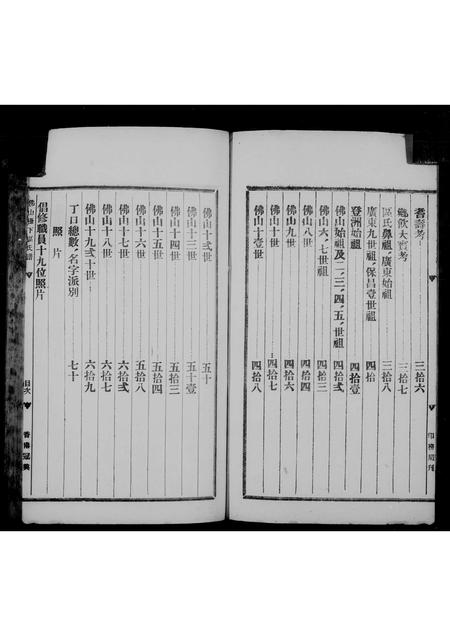 耆壽考 三拾六
鄉飲大賓考 三拾七
區氏鼻祖，廣東始祖 三拾八
廣東九世祖，保昌壹世祖 四拾
登洲始祖 四拾壹
佛山始祖及二，三，四，五，世祖 四拾弍
佛山六，七世祖 四拾三
佛山八世 四拾四
佛山九世 四拾六
佛山十世 四拾七
佛山十壹世 四拾八
佛山十弍世 五十
佛山十三世 五十壹
佛山十四世 五拾三
佛山十五世 五拾四
佛山十六世 五拾八
佛山十七世 六拾弍
佛山十八世 六拾六
佛山十九弍十世 六拾九
丁口總數，名字派別 七十
照片
倡修職員十九位照片
目次